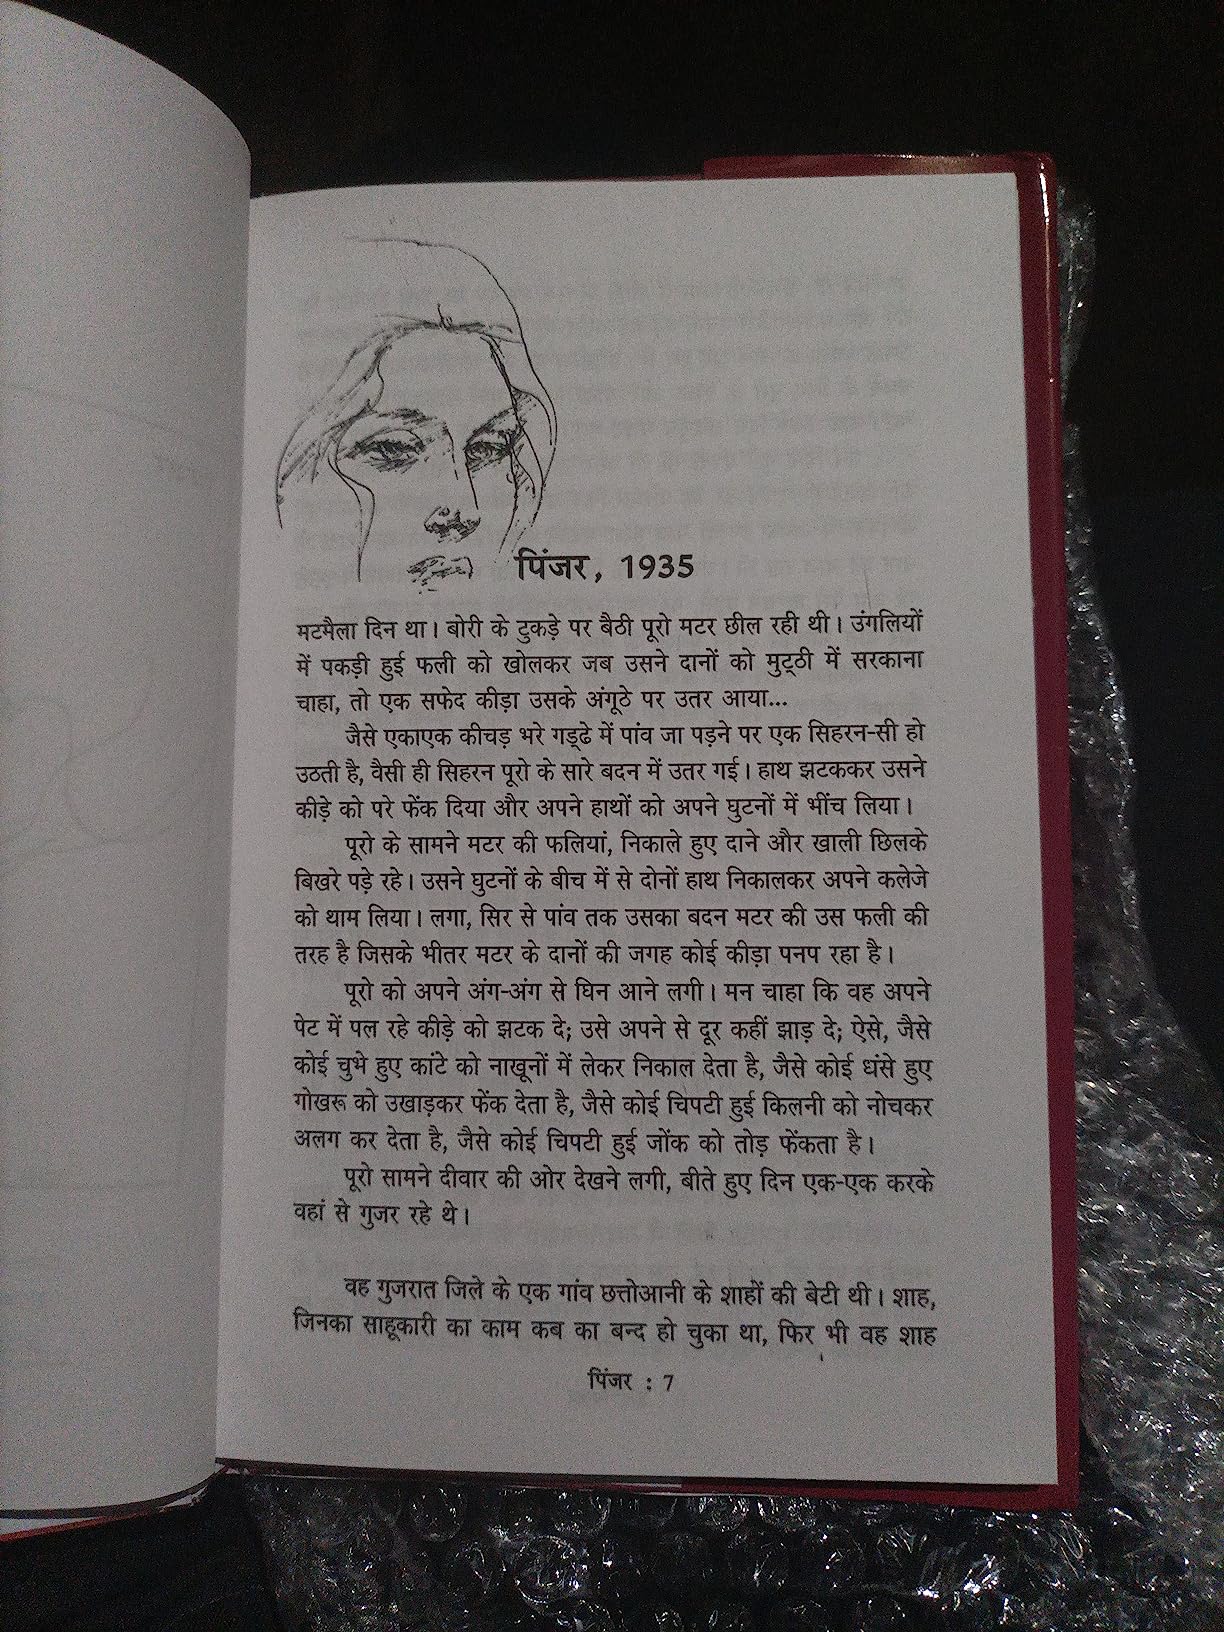 पिंजर, 1935
मटमैला दिन था। बोरी के टुकड़े पर बैठी पूरो मटर छील रही थी। उंगलियों
में पकड़ी हुई फली को खोलकर जब उसने दानों को मुट्ठी में सरकाना
चाहा, तो एक सफेद कीड़ा उसके अंगूठे पर उतर आया...
जैसे एकाएक कीचड़ भरे गड्ढे में पांव जा पड़ने पर एक सिहरन-सी हो
उठती है, वैसी ही सिहरन पूरो के सारे बदन में उतर गई। हाथ झटककर उसने
कीड़े को परे फेंक दिया और अपने हाथों को अपने घुटनों में भींच लिया।
पूरो के सामने मटर की फलियां, निकाले हुए दाने और खाली छिलके
बिखरे पड़े रहे। उसने घुटनों के बीच में से दोनों हाथ निकालकर अपने कलेजे
को थाम लिया। लगा, सिर से पांव तक उसका बदन मटर की उस फली की
तरह है जिसके भीतर मटर के दानों की जगह कोई कीड़ा पनप रहा है।
पूरो को अपने अंग-अंग से घिन आने लगी। मन चाहा कि वह अपने
पेट में पल रहे कीड़े को झटक दे; उसे अपने से दूर कहीं झाड़ दे; ऐसे, जैसे
कोई चुभे हुए कांटे को नाखूनों में लेकर निकाल देता है, जैसे कोई धंसे हुए
गोखरू को उखाड़कर फेंक देता है, जैसे कोई चिपटी हुई किलनी को नोचकर
अलग कर देता है, जैसे कोई चिपटी हुई जोंक को तोड़ फेंकता है।
पूरो सामने दीवार की ओर देखने लगी, बीते हुए दिन एक-एक करके
वहां से गुजर रहे थे।
वह गुजरात जिले के एक गांव छत्तोआनी के शाहों की बेटी थी। शाह,
जिनका साहूकारी का काम कब का बन्द हो चुका था, फिर भी वह शाह
पिंजर : 7